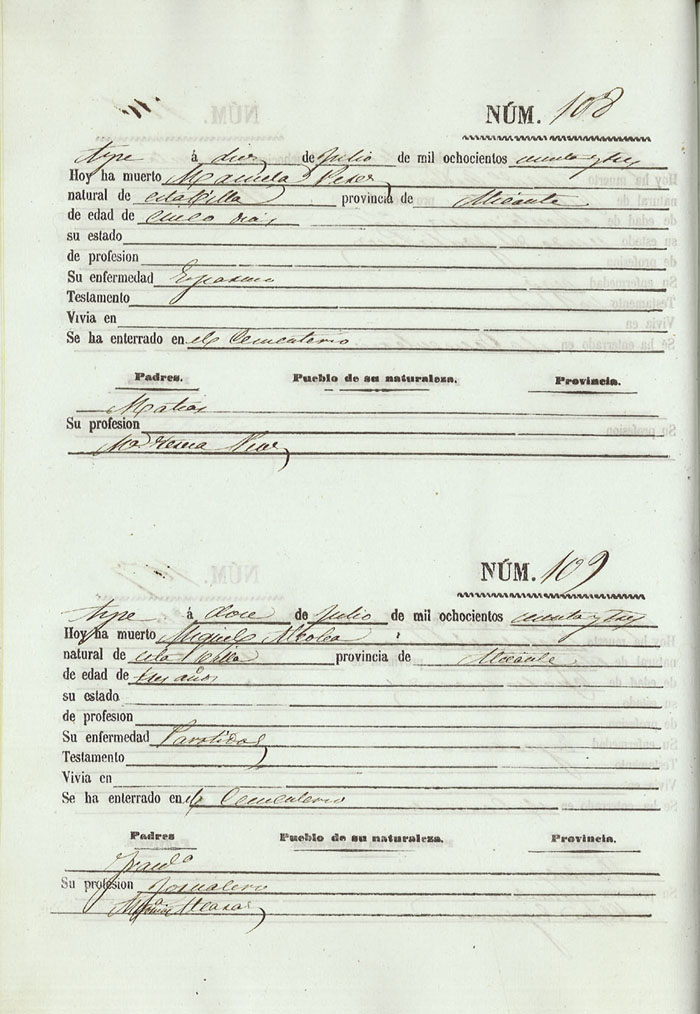 NÚM. 108
á diez de Julio de mil ochocientos
Hoy ha muerto Manuela Perez
natural de esta Villa provincia de Alicante
de edad de cinco dias
su estado
de profesion
Su enfermedad Espasmo
Testamento
Vivia en
Se ha enterrado en el Cementerio
Padres. Pueblo de su naturaleza. Provincia.
Matias
Su profesion
NÚM. 109
á doce de Julio de mil ochocientos
Hoy ha muerto Miguel Alcolea
natural de esta Villa provincia de Alicante
de edad de tres años
su estado
de profesion
Su enfermedad Parotidas
Testamento
Vivia en
Se ha enterrado en el Cementerio
Padres Pueblo de su naturaleza. Provincia.
Su profesion Jornalero